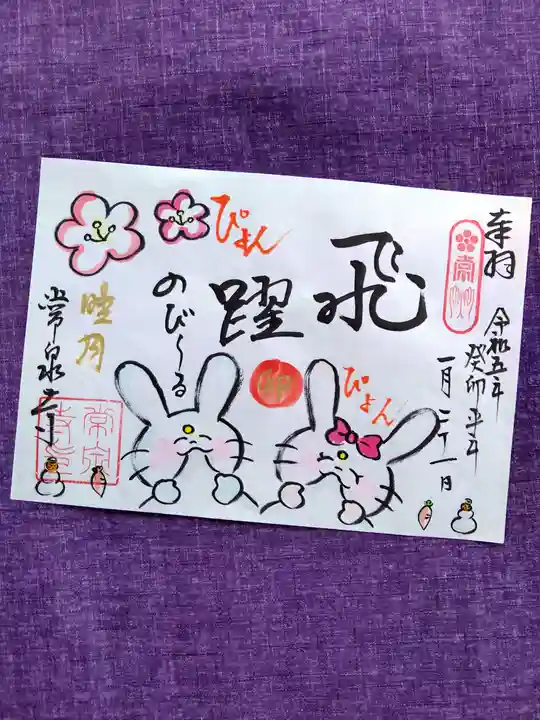 奉拝
令和五年
癸卯年
一月二十一日
飛躍
ぴょん
ぴょん
のび〜る
睦月
常泉寺